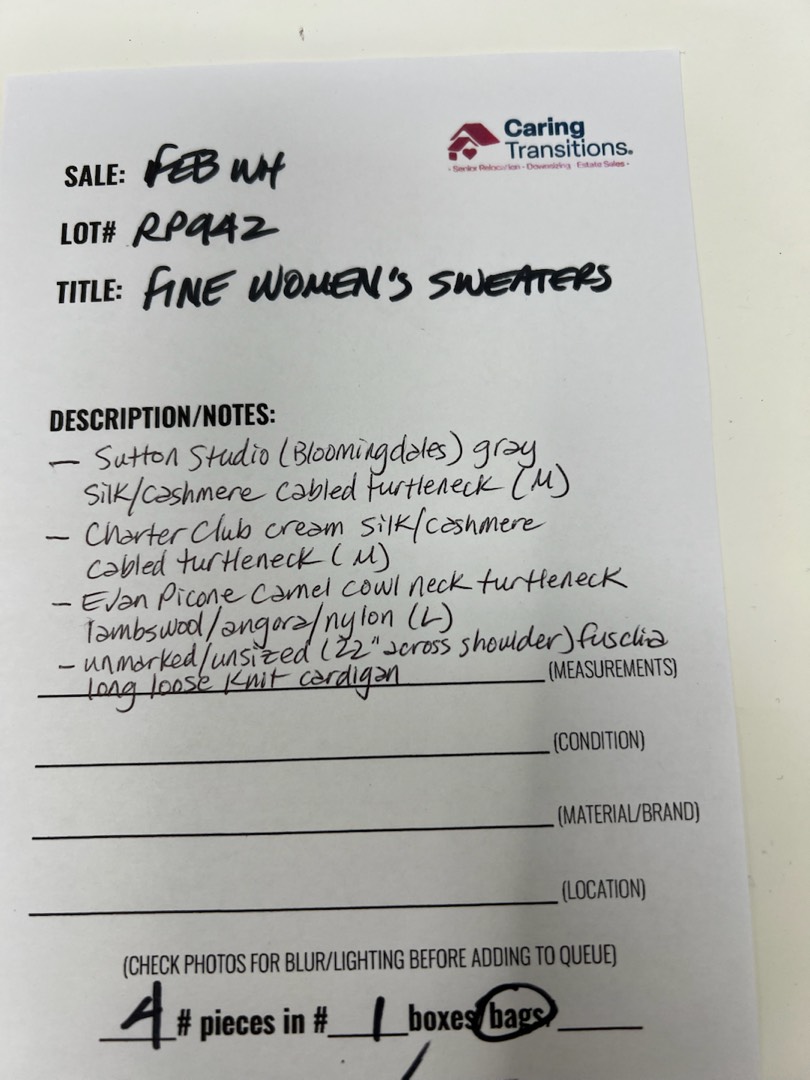 Caring
Transitions.
- Senior Relocation - Downsizing - Estate Sales -
SALE: FEB WH
LOT# RP942
TITLE: FINE WOMEN'S SWEATERS
DESCRIPTION/NOTES:
— Sutton Studio (Bloomingdales) gray
silk/cashmere cabled turtleneck (M)
— Charter Club cream silk/cashmere
cabled turtleneck (M)
— Evan Picone camel cowl neck turtleneck
lambswool/angora/nylon (L)
— unmarked/unsized (22" across shoulder) fusclia
long loose knit cardigan (MEASUREMENTS)
(CONDITION)
(MATERIAL/BRAND)
(LOCATION)
(CHECK PHOTOS FOR BLUR/LIGHTING BEFORE ADDING TO QUEUE)
4 # pieces in # 1 boxes/bags